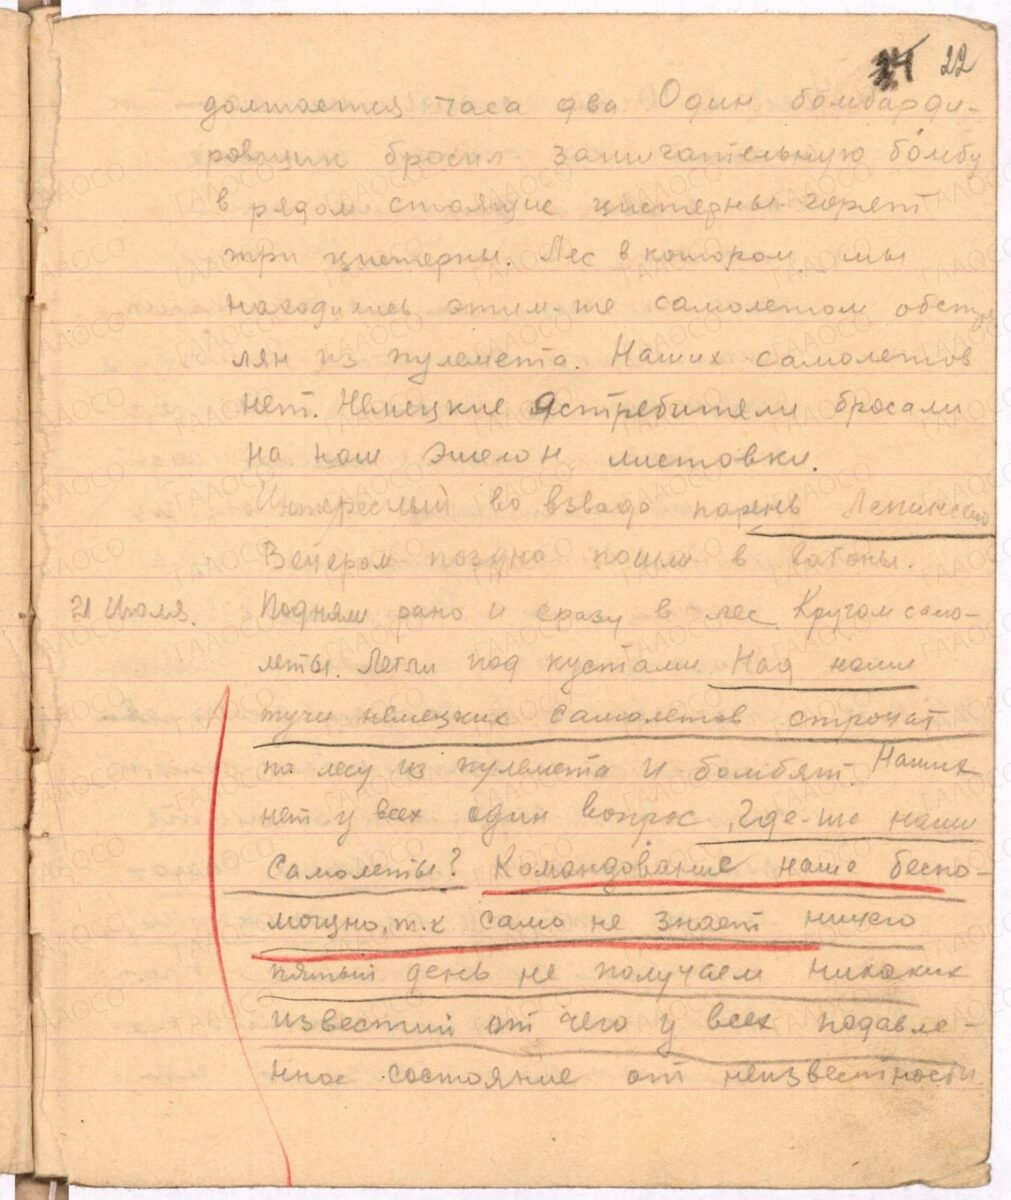 22
должается часа два Один бомбарди-
ровщик бросил зажигательную бомбу
в рядом стоящие цистерны горят
три цистерны. Лес в котором мы
находились этим-же самолетом обстре
лян из пулемета. Наших самолетов
нет. Немецкие ястребители бросали
на наш эшелон листовки.
Интересный во взводе парень Лепинский
Вечером поздно пошли в вагоны.
21 Июля. Подняли рано и сразу в лес. Кругом само-
леты. Легли под кустами Над нами
тучи немецких самолетов строчат
по лесу из пулемета и бомбят. Наших
нет у всех один вопрос, Где-же наши
Самолеты? Командование наше беспо-
мощно, т.к само не знает ничего
пятый день не получаем никаких
известий от чего у всех подавле-
нное состояние от неизвестности
ГААОСО